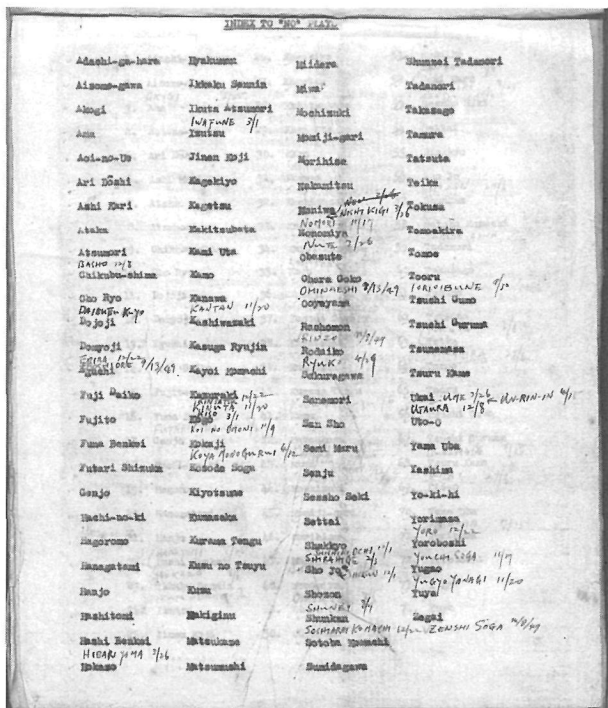 INDEX TO "NO" PLAYS
Adachi-ga-hara
Aisome-gawa
Akogi
Ama
Aoi-no-Ue
Ari Doshi
Ashi Kari
Ataka
Atsumori
BASHO 12/8
Chikubu-shima
Cho Ryo
DAIBUTSU KUYO
Dojoji
Domyoji
Eguchi
Fuji Daiko
Fujito
Funa Benkei
Futari Shizuka
Genjo
Hachi-no-ki
Hagoromo
Hanagatami
Hanjo
Hashitomi
Hashi Benkei
HIBARIYAMA 2/26
Hokazo
Hyakuman
Ikkaku Sennin
Ikuta Atsumori
IWAFUNE 3/1
Izutsu
Jinen Koji
Kagekiyo
Kagetsu
Kakitsubata
Kami Uta
Kamo
Kanawa
KANTAN 11/20
Kashiwazaki
Kasuga Ryujin
Kayoi Komachi
KINUTA 11/20
Kogo
KOI NO OMONI 11/9
Kokaji
KOYA MONOGURUI 6/12
Kosode Soga
Kiyotsune
Kumasaka
Kurama Tengu
Kusu no Tsuyu
Kuzu
Makiginu
Matsukaze
Matsumushi
Miidera
Miwa
Mochizuki
Momiji-gari
Morihisa
Nakamitsu
Naniwa
NISHI KIGI 2/26
NOMORI 11/17
Nonomiya
NUYE 2/26
Obasute
Ohara Goko
OMINAESHI
Ooyeyama
Rashomon
Rodaiko
RYUKO 4/29
Sakuragawa
Sanemori
San Sho
Semi Maru
Senju
Sessho Seki
Settai
Shakkyo
SHIRAHIGE 2/1
Sho jo
Shozon
Shunkan
SOTOBA KOMACHI 12/22
Sotoba Komachi
Sumidagawa
Shunzei Tadanori
Tadanori
Takasago
Tamura
Tatsuta
Teika
Tokusa
Tomoakira
Tomoe
Tooru
Tsuchi Gumo
Tsuchi Guruma
Tsunemasa
Tsuru Kame
Ukai
UME 2/26
UN-RIN-IN
UTAURA 12/8
Uto-o
Yama Uba
Yashima
Yo-ki-hi
Yorimasa
YORO 12/22
Yoroboshi
YOUCHI SOGA 11/9
Yugao
YUGYO YANAGI 11/20
Yuya
Zegai
ZENSHI SOGA